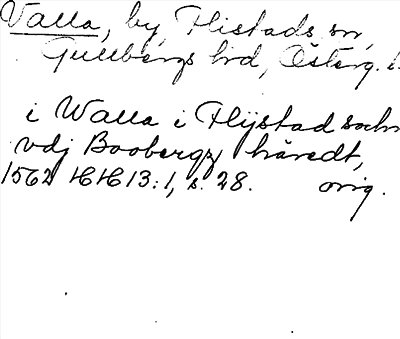 Valla, by, Flistads sn,
Gullbergs hrd, Österg. l.
i Walla i Flystad sochn
vdj Boobergz häredt,
1562 HH 13:1, s. 28. orig.